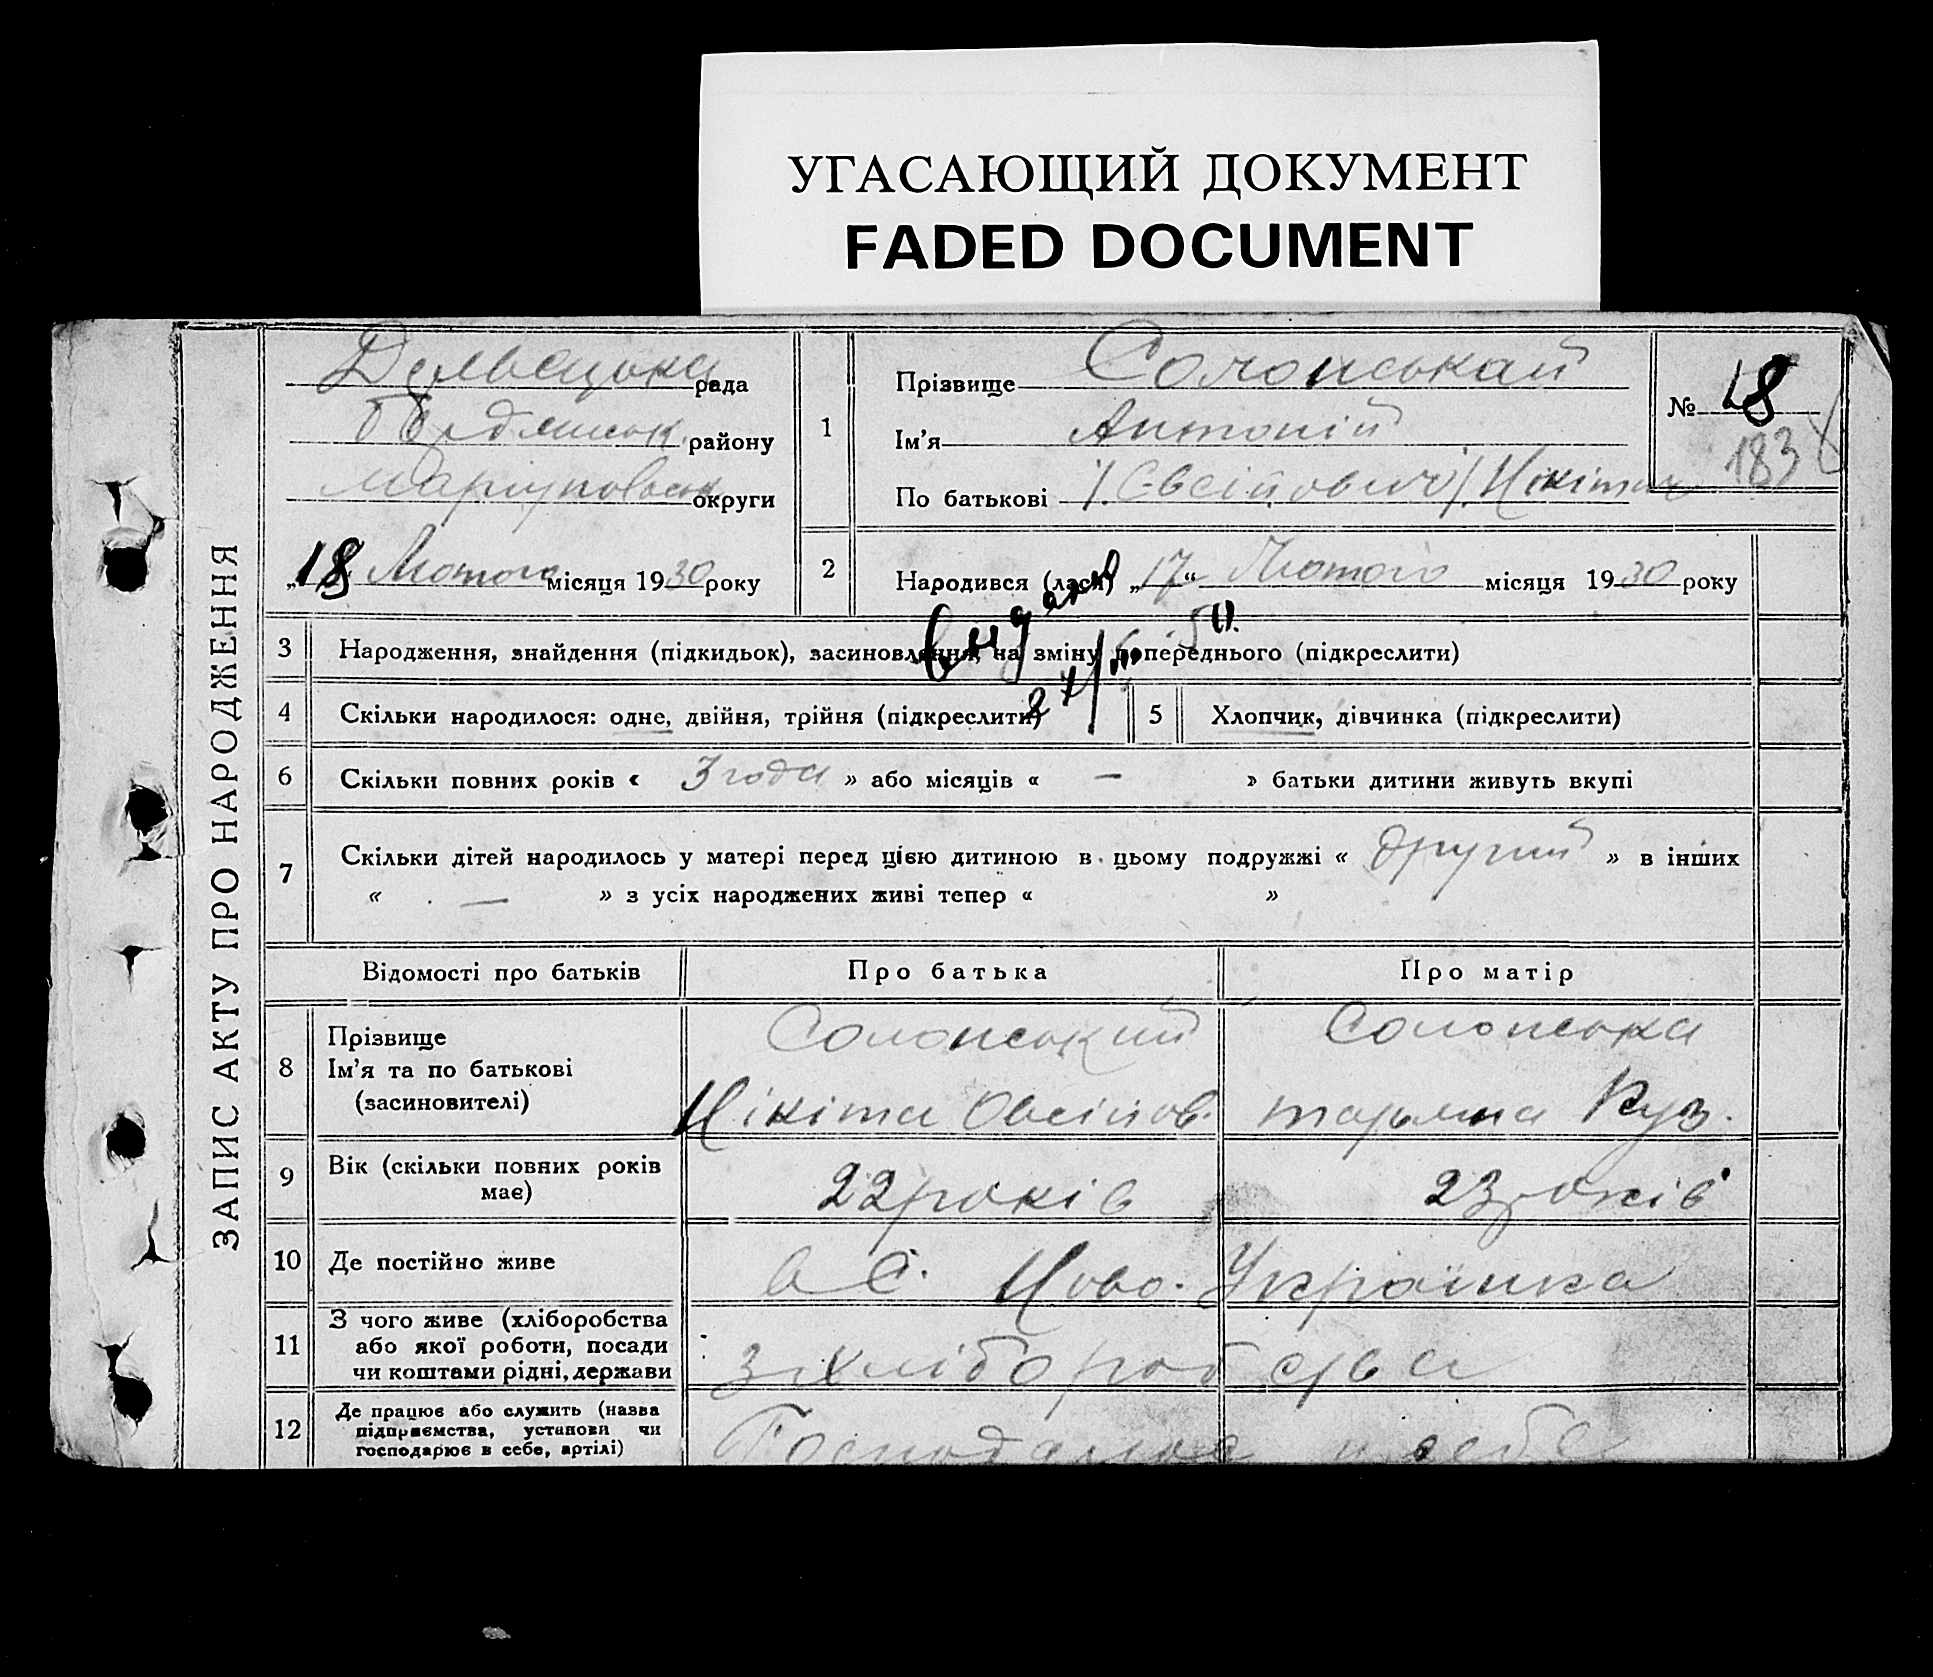 УГАСАЮЩИЙ ДОКУМЕНТ
FADED DOCUMENT
ЗАПИС АКТУ ПРО НАРОДЖЕННЯ
рада
району
Маріупольськ округи
„18“ Лютого місяця 1930 року
1
Прізвище Солонський
Ім’я Антоній
По батькові /.Євсійович/ Нікітич
№ 18
183
2
Народився (лася) „17“ Лютого місяця 1930 року
3 Народження, знайдення (підкидьок), засиновлення, на зміну попереднього (підкреслити)
4 Скільки народилося: одне, двійня, трійня (підкреслити)
5 Хлопчик, дівчинка (підкреслити)
6 Скільки повних років « 3 года » або місяців « — » батьки дитини живуть вкупі
7 Скільки дітей народилось у матері перед цією дитиною в цьому подружжі « другий » в інших
« — » з усіх народжених живі тепер « »
Відомості про батьків Про батька Про матір
8
Прізвище
Ім’я та по батькові
(засиновителі)
Солонський
Нікіта Овсійов.
Солонська
Куз.
9
Вік (скільки повних років
має)
22 років
23 років
10 Де постійно живе
в с. Ново-Українка
11
З чого живе (хліборобства
або якої роботи, посади
чи коштами рідні, держави
з хліборобства
12
Де працює або служить (назва
підприємства, установи чи
господарює в себе, артілі)